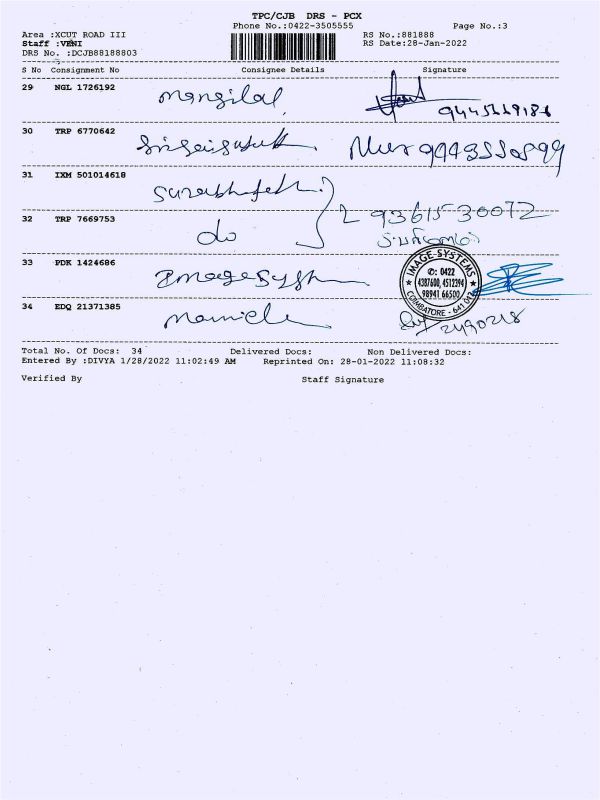 TPC/CJB DRS - PCX
Phone No.:0422-3505555 Page No.:3
Area :XCUT ROAD III RS No.:881888
Staff :VENI RS Date:28-Jan-2022
DRS No. :DCJB88188803
S No Consignment No Consignee Details Signature
29 NGL 1726192 mangilal
30 TRP 6770642
31 IXM 501014618
32 TRP 7669753 do 93615-30072
33 PDK 1424686 Image System
IMAGE SYSTEMS
✆: 0422
4387600, 4512394
98941 66500
COIMBATORE - 641 012
34 EDQ 21371385 2490218
Total No. Of Docs: 34 Delivered Docs: Non Delivered Docs:
Entered By :DIVYA 1/28/2022 11:02:49 AM Reprinted On: 28-01-2022 11:08:32
Verified By Staff Signature